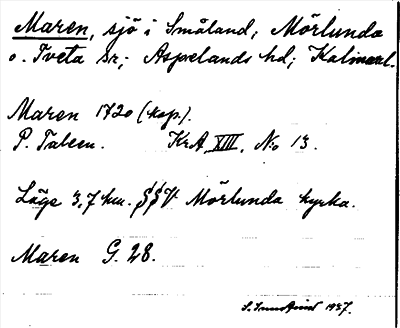 Maren, sjö i Småland; Mörlunda
o. Tveta sr; Aspelands hd; Kalmarl.
Maren 1720 (kop.).
P. Tabem. KrA, XIII, No 13.
Läge 3,7 km. SSV Mörlunda kyrka.
Maren G. 28.
1937.